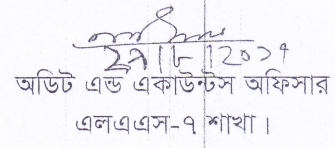 অডিট এন্ড একাউন্টস অফিসার
এলএএস-৭ শাখা।